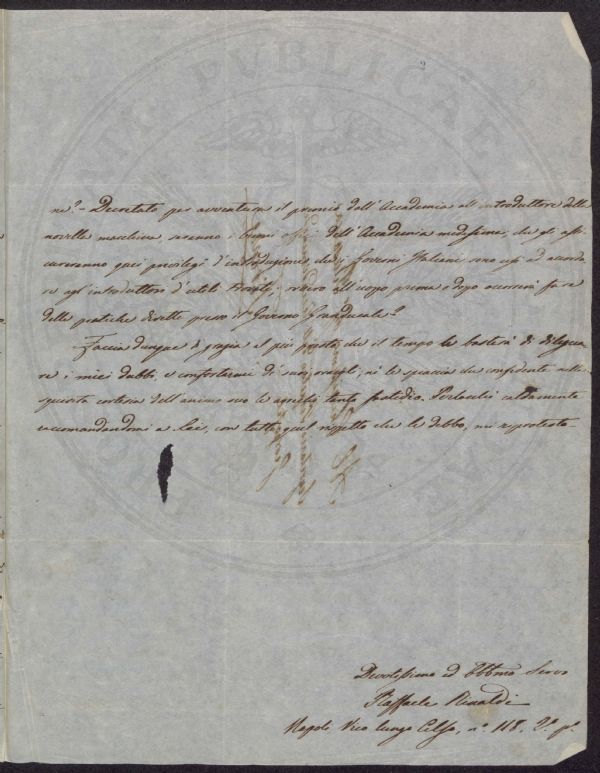 2
ne? - Decretato per avventura il premio dall'Accademia all'introduttore della
novella macchina saranno i buoni offici dell'Accademia medesima, che gli assi
cureranno quei privilegi d'introduzione che i Governi Italiani sono usi ad accorda
re agl'introduttori d'utili trovati, ovvero all'uopo prima o dopo occorrerà fare
delle pratiche dirette presso il Governo Granducale?
Faccia dunque di grazia il più presto che il tempo le basterà di dilegua
re i miei dubbi, e confortarmi di suoi oracoli, nè le spiaccia che confidente nella
squisita cortesia dell'animo suo le agresti tanto fastidio. Perlochè caldamente
raccomandandomi a Lei, con tutto quel rispetto che le debbo, mi riprotesto
Devotissimo ed Obbmo Servo
Raffaele Rinaldi
Napoli Vico lungo Celso, n.° 118. 2.° p.°
PVBLICAE